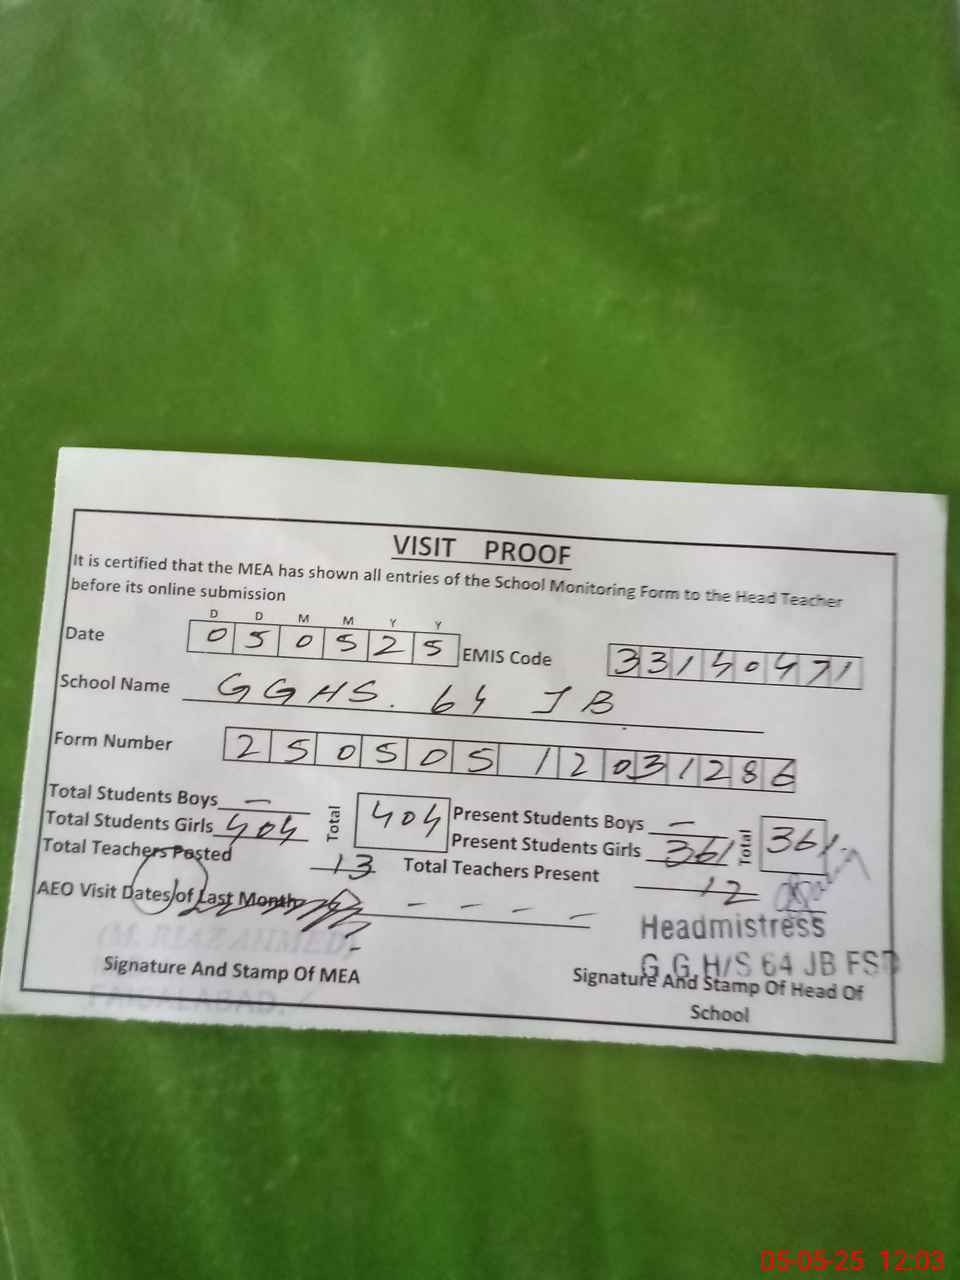 VISIT PROOF
It is certified that the MEA has shown all entries of the School Monitoring Form to the Head Teacher
before its online submission
D D M M Y Y
Date 0 5 0 5 2 5 EMIS Code 3 3 1 4 0 4 7 1
School Name GGHS. 64 JB
Form Number 2 5 0 5 0 5 1 2 0 3 1 2 8 6
Total Students Boys — Total 404 Present Students Boys — Total 361
Total Students Girls 404 Present Students Girls 361
Total Teachers Posted 13 Total Teachers Present 12
AEO Visit Dates of Last Month - - - -
Headmistress
(M. RIAZ AHMED)
G.G.H/S 64 JB FSD
Signature And Stamp Of MEA Signature And Stamp Of Head Of
School
FAISALABAD.
05-05-25 12:03